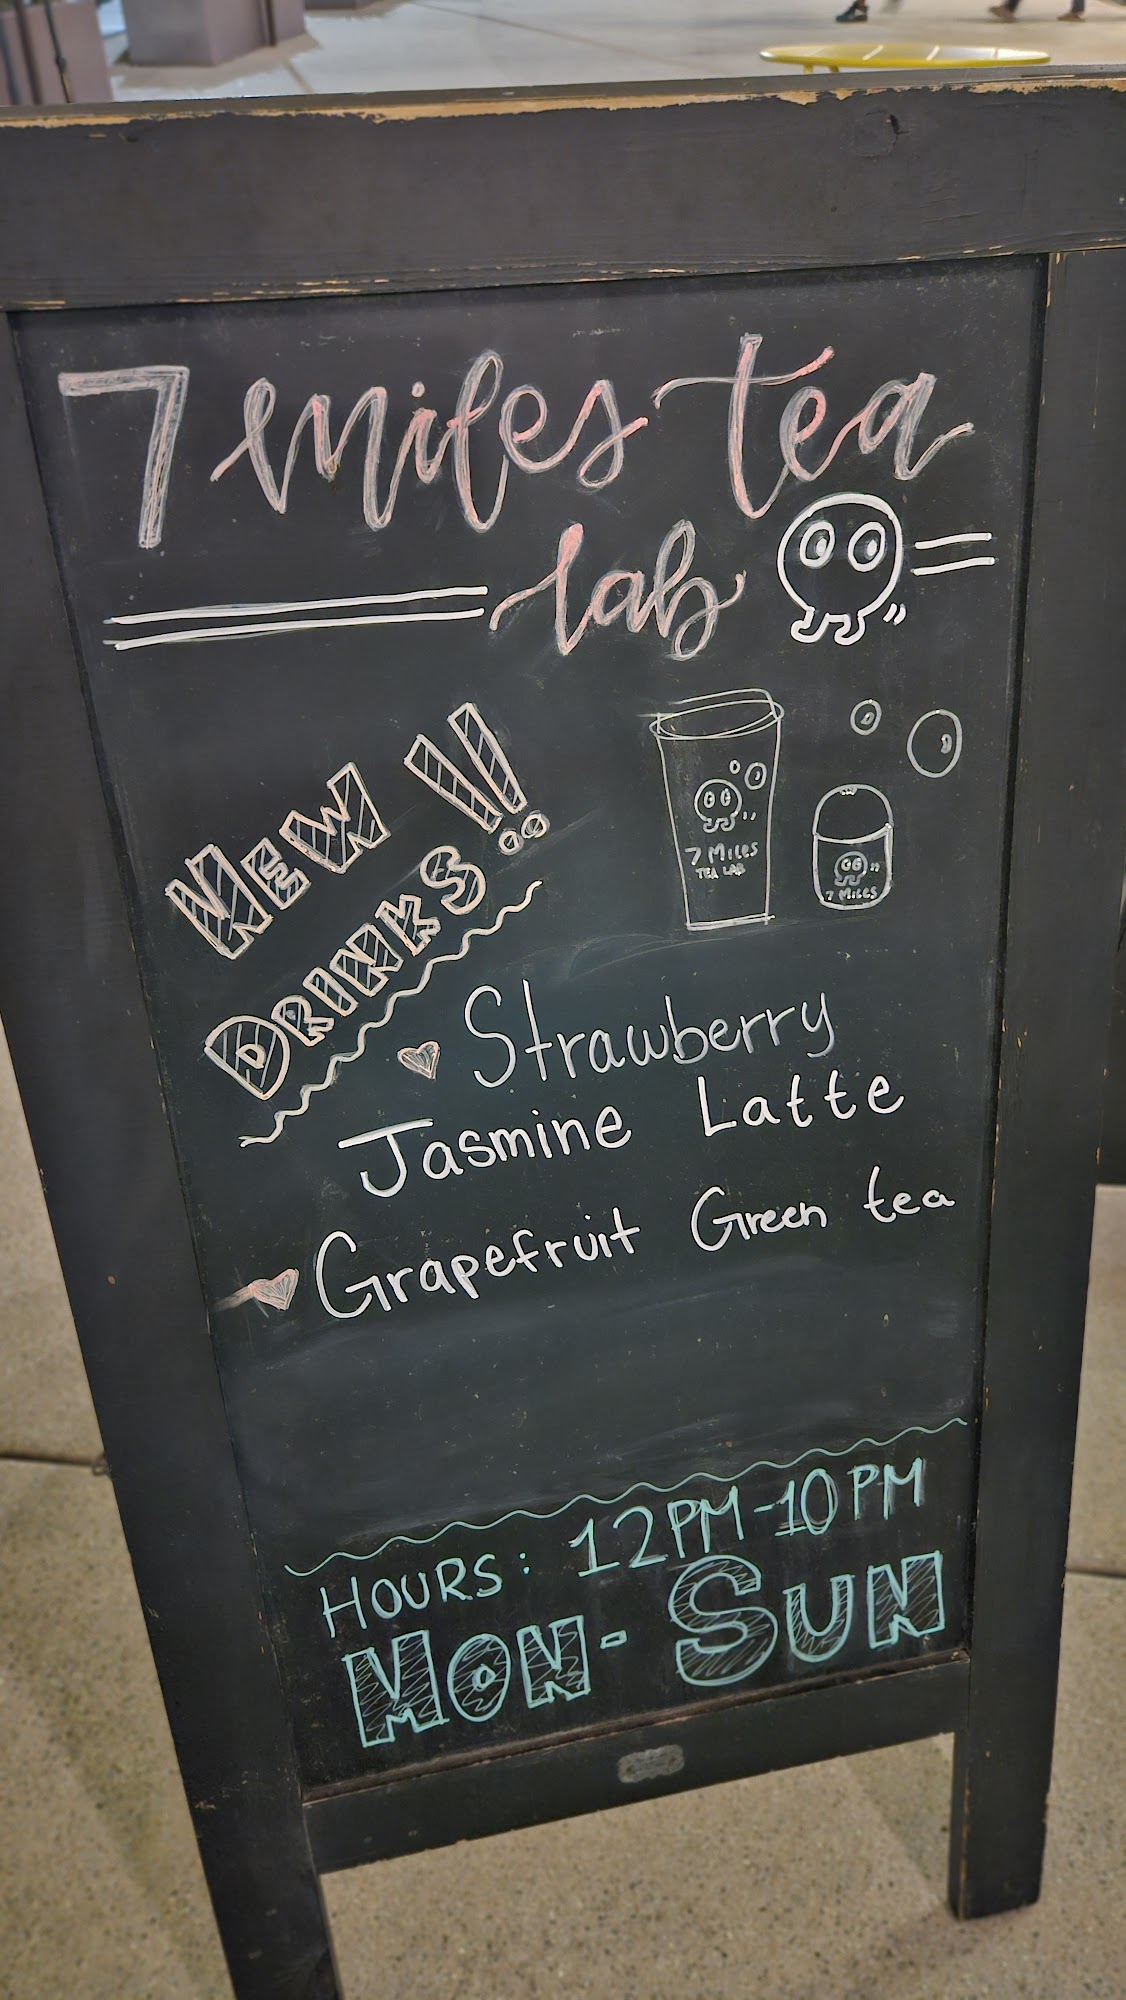 7 miles tea
lab
NEW !!
DRINKS
7 MILES
TEA LAB
7 MILES
Strawberry
Jasmine Latte
Grapefruit Green tea
HOURS: 12PM-10PM
MON-SUN